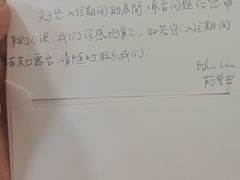 对您入住期间的房间噪音问题给您带
来的不便，我们深感抱歉。如若您入住期间
有其它需要，请随时联系我们。
前堂部